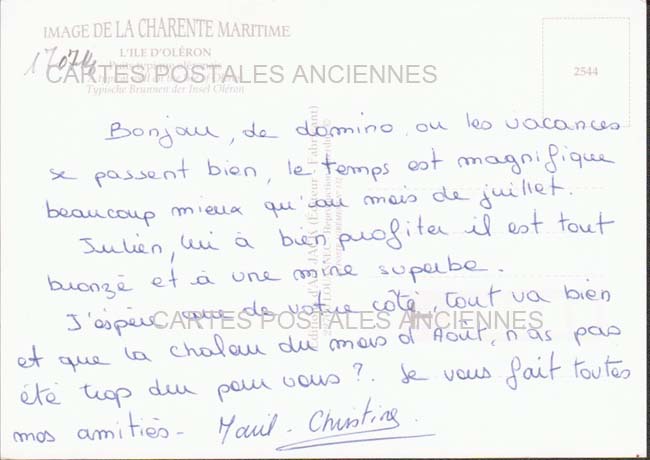 IMAGE DE LA CHARENTE MARITIME
L'ILE D'OLÉRON
17074
CARTES POSTALES ANCIENNES
Typische Brunnen der Insel Oléron
2544
Bonjour, de domino, ou les vacances
se passent bien, le temps est magnifique
beaucoup mieux qu'au mois de juillet.
Julien, lui à bien profiter il est tout
bronzé et à une mine superbe.
J'espère que de votre côté, tout va bien
CARTES POSTALES ANCIENNES
et que la chaleur du mois d'Août, n'as pas
été trop dur pour vous ?. Je vous fait toutes
mos amitiés - Marie - Christine